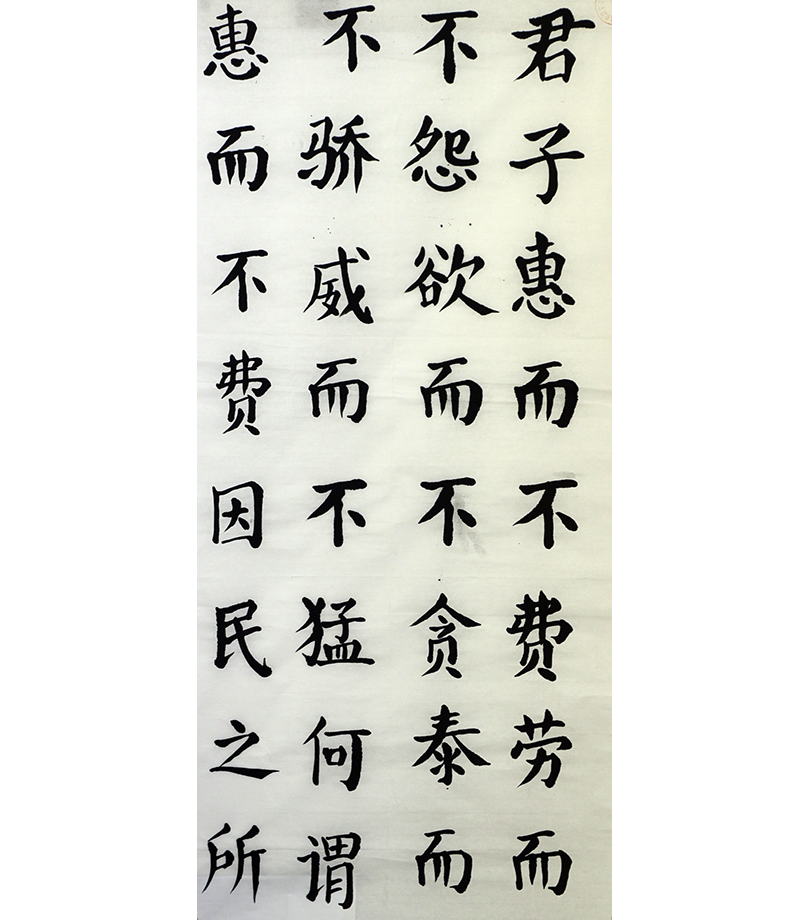 君子惠而不费劳而
不怨欲而不贪泰而
不骄威而不猛何谓
惠而不费因民之所